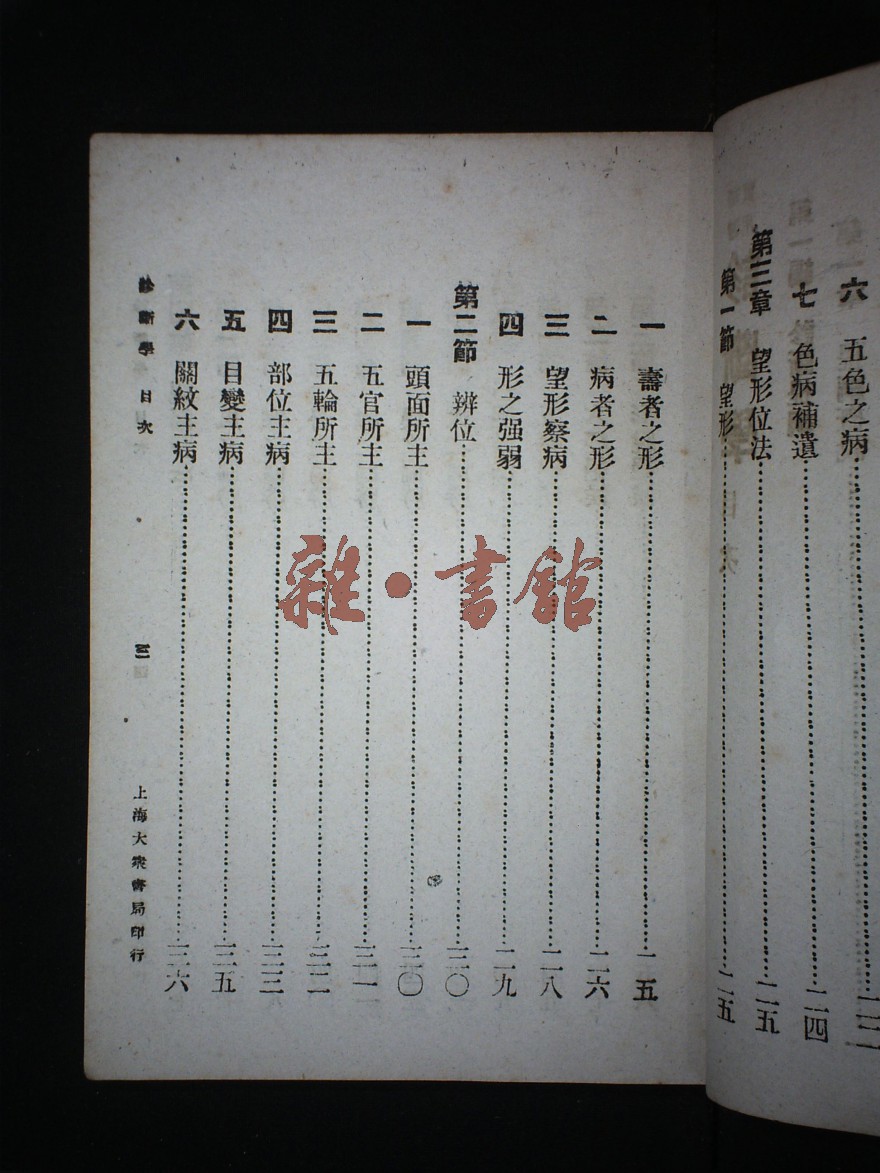 六　五色之病……二三
七　色病補遺……二四
第三章　望形位法……二五
第一節　望形……二五
一　壽者之形……二五
二　病者之形……二六
三　望形察病……二八
四　形之强弱……二九
第二節　辨位……三〇
一　頭面所主……三〇
二　五官所主……三一
三　五輪所主……三二
四　部位主病……三三
五　目變主病……三五
六　關紋主病……三六
診斷學　目次
三
上海大衆書局印行
雜·書館